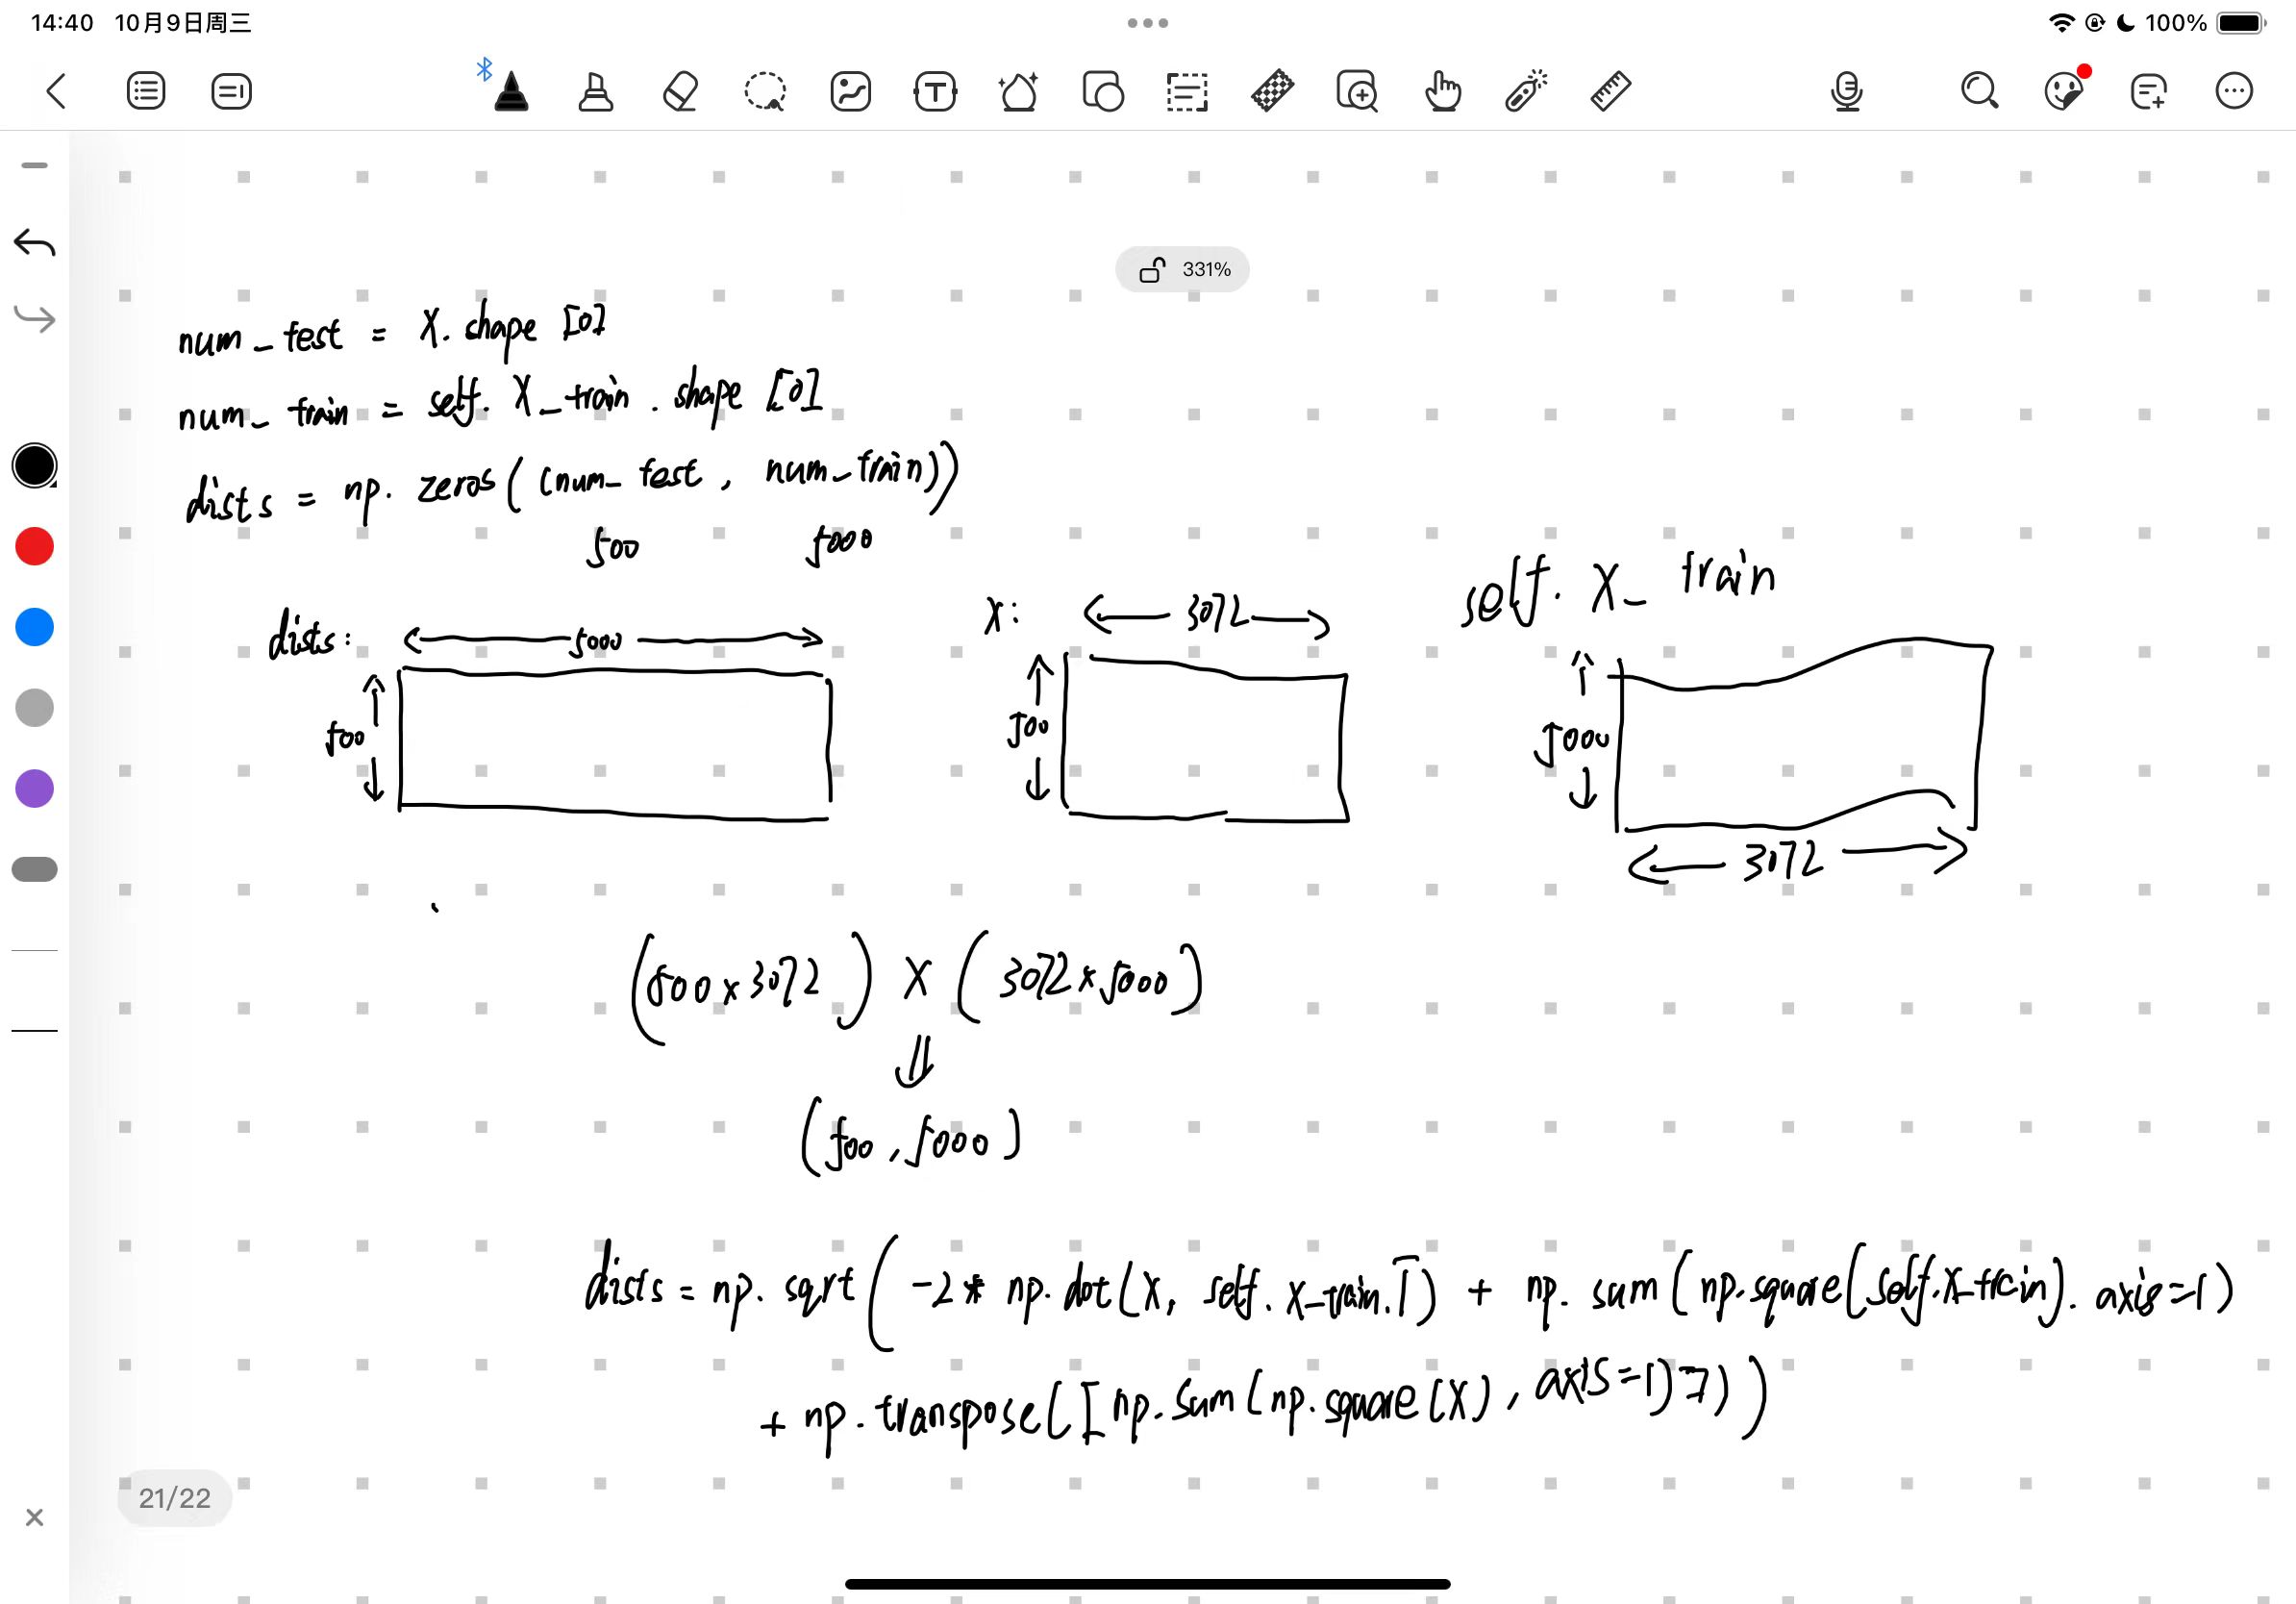 14:40 10月9日周三
100%
331%
num_test = X.shape[0]
num_train = self.X_train.shape[0]
dists = np.zeros((num_test, num_train))
500 5000
self.X_train
dists: 5000
X: 3072
500
500
5000
3072
(500×3072) × (3072×5000)
⇓
(500, 5000)
dists = np.sqrt(-2* np.dot(X, self.X_train.T) + np.sum(np.square(self.X_train). axis=1)
+ np.transpose([np.sum(np.square(X), axis=1)]))
21/22